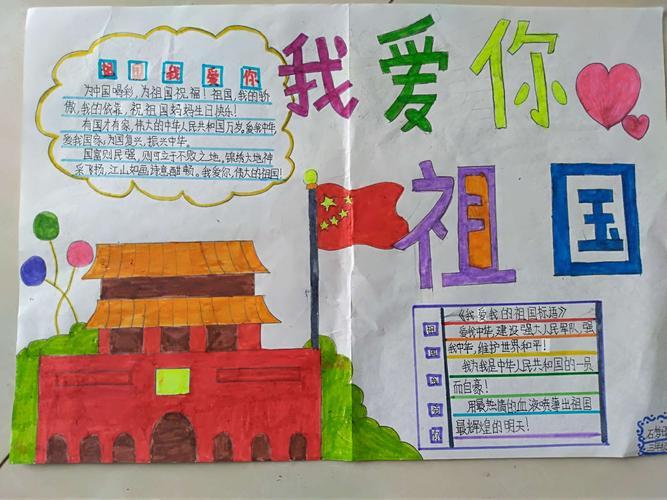 我爱你
祖国
祖国我爱你
为中国喝彩，为祖国祝福！祖国，我的骄
傲，我的依靠，祝祖国妈妈生日快乐！
有国才有家，伟大的中华人民共和国万岁。爱我中华，
爱我国家，为国复兴，振兴中华。
国富则民强，则可立于不败之地，锦绣大地神
采飞扬，江山如画诗意酣畅。我爱你，伟大的祖国！
《我爱我的祖国标语》
爱我中华，建设强大人民军队，强
我中华，维护世界和平！
我为我是中华人民共和国的一员
而自豪！
用最热情的血液喷薄出祖国
最辉煌的明天！